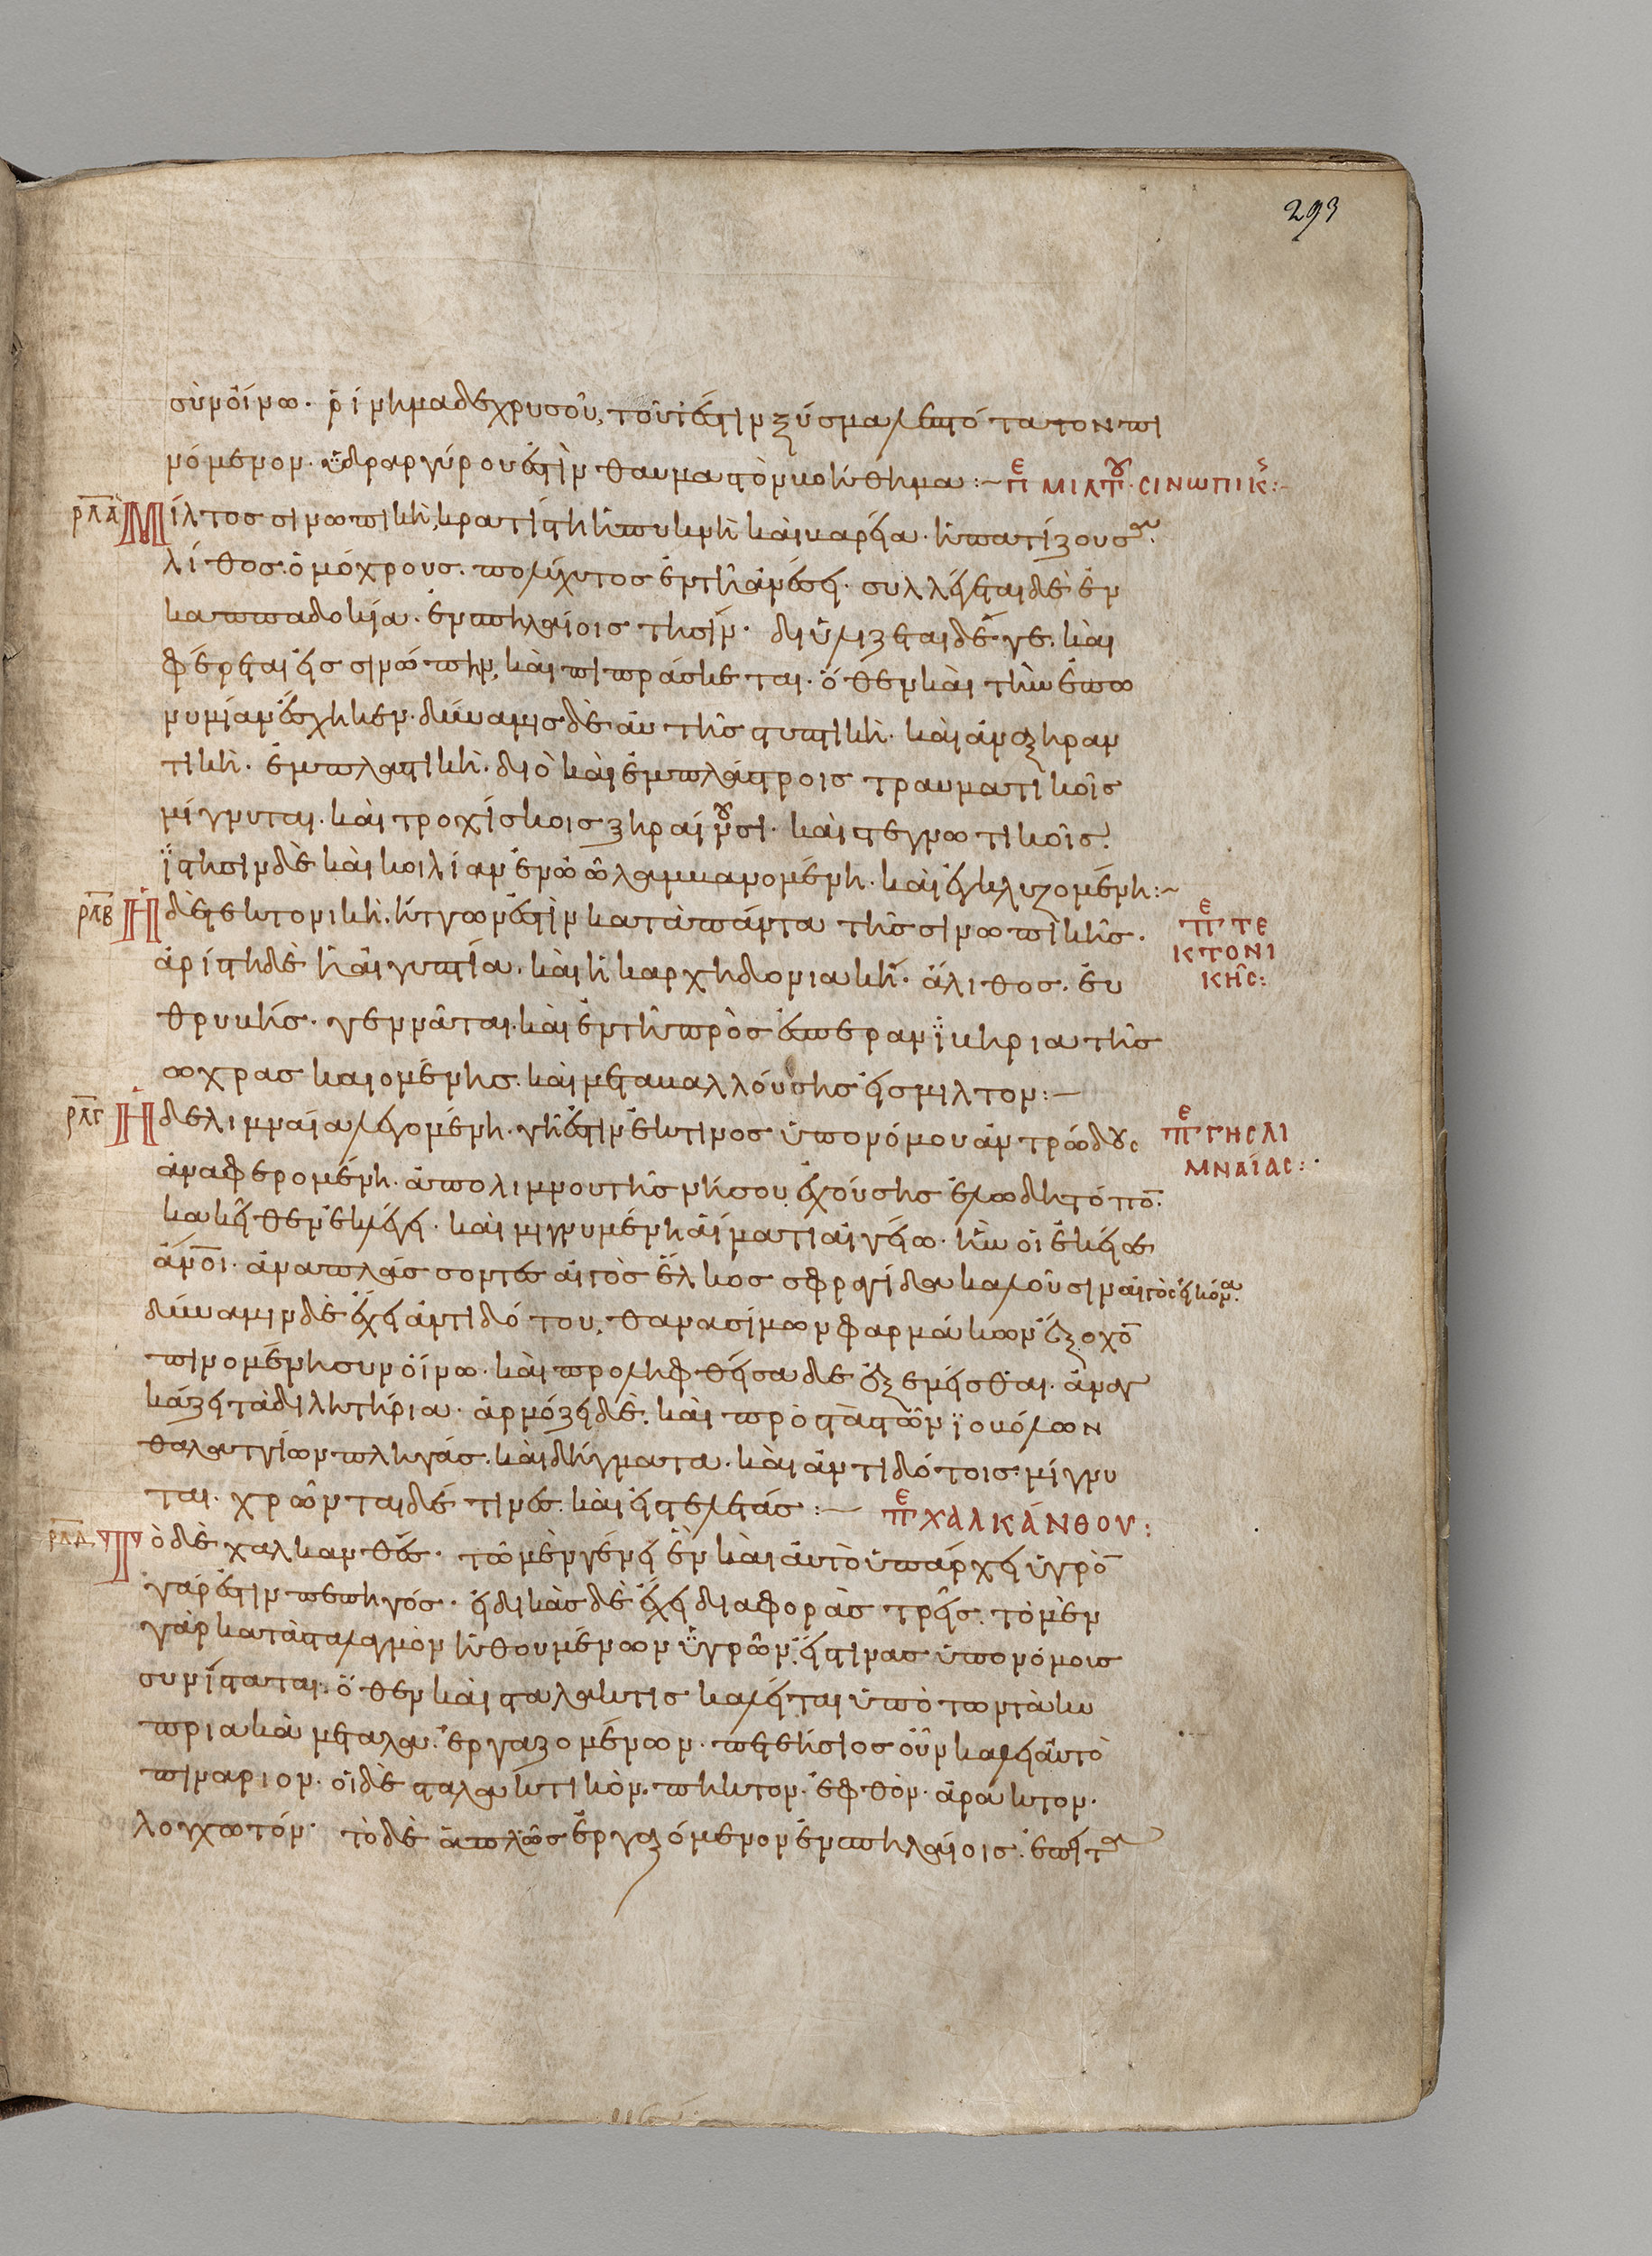 σὺν οἴνω. ῥίνημα δε χρυσοῦ, τουτέστιν ξύσμα λεπτότατον πι
νόμενον. ὑδραργύρου ἐστὶν θαυμαστὸν κολύθημα :~ πε μιλτου σινωπικ :-
ρλα Μίλτος σινωπικὴ, κρατίστη ἡ πυκνὴ καὶ καρεία. ἡπατίζουσα.
λίθος. ὁμόχρους. πολύχυτος ἐν τῆ ἀνέσει. συλλέγεται δὲ ἐν
καππαδοκία. ἐν σπηλαίοις τησίν. διϋλίζεται δέ γε. καὶ
φέρεται εἰς σινώπην, καὶ πιπράσκεται. ὅθεν καὶ τὴν ἐπω
νυμίαν ἔσχηκεν. δύναμις δὲ αὐτῆς στυπτικὴ. καὶ ἀναξηραν
τικὴ. ἐμπλαστικὴ. διὸ καὶ ἐμπλάστροις τραυματικοῖς
μίγνυται. καὶ τροχίσκοις ξηραίνουσι. καὶ στεγνωτικοῖς.
ἵστησιν δὲ καὶ κοιλίαν ἐν ὠῶ λαμκανομένη. καὶ ἐγκλυζομένη :~
ρλβ Ἡ δὲ τεκτονικὴ. ἥττων ἐστὶν κατὰ πάντα τῆς σινωπικῆς.
πε τε
κτονι
κῆς :
ἀρίστη δὲ ἡ αἰγυπτία. καὶ ἡ καρχηδονιακή. ἄλιθος. εὐ
θρυκής. γεννᾶται. καὶ ἐν τῆ πρὸς ἑσπεραν ἰκηρια τῆς
ωχρας καιομένης. καὶ μετακαλλούσης εἰς μιλτον :-
ρλγ Ἡ δε λιμναία λεγομένη. γῆ ἐστιν ἐκ τινος ὑπονόμου ἀντρώδους
πε γης λι
μναίας :
ἀναφερομένη. ἀπο λιμνου τῆς νήσου ἐχούσης ἑλώδη τόπο̅.
κακεῖθεν ἐκλέγει. καὶ μιγνυμένη αἵματι αἰγείω. ἣν οἱ ἐκεῖσε
ἄν̅οι. ἀναπλάσσοντες αἰγὸς ἕλκος σφραγίδα καλοῦσιν αἰγὸς εἰκόνα.
δύναμιν δὲ ἔχει ἀντιδότου, θανασίμων φαρμάκων ἐξοχο̅
πινομένη συν οἴνω. καὶ προληφθεῖσα δε ἐξεμεῖσθαι. ἀναγ
κάζει τὰ διλητήρια. ἁρμόζει δὲ. καὶ πρὸς τὰς τῶν ἰοκόλων
θαλαττίων πληγάς. καὶ δήγματα. καὶ ἀντιδότοις μίγνυ
ται. χρῶνται δέ τινες. καὶ εἰς τελετάς :- πε χαλκάνθου :
ρλδ Τὸ δὲ χαλκανθές. τῶ μὲν γένει ἓν καὶ αὐτὸ ὑπάρχει ὑγρὸ̅
γάρ ἐστιν πεπηγός. εἰδικὰς δὲ ἔχει διαφορὰς τρεῖς. τὸ μὲν
γὰρ κατὰ σταλαγμὸν ἠθουμένων ὑγρῶν. εἴς τινας ὑπονόμοις
συνίσταται. ὅθεν καὶ σταλακτις καλεῖται ὑπὸ των τὰ κυ
πριακὰ μεταλα. ἐργαζομένων. πετεήσιος οὖν καλεῖ αὐτὸ
πιναριον. οἱ δὲ σταλακτικὸν. πηκτον. ἐφθὸν. ἀράκτον.
λογχωτόν. τὸ δὲ ἁπλῶς ἐργαζόμενον ἐν σπηλαίοις. ἐπεὶτα
293